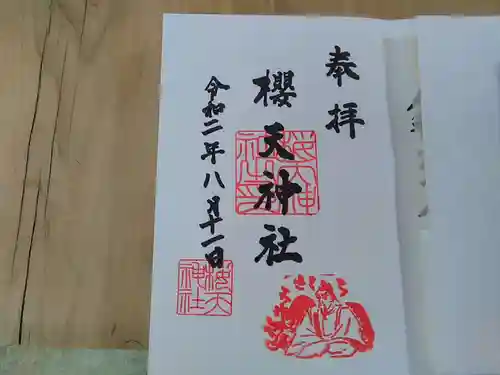 奉拝
櫻天神社
令和二年八月十一日